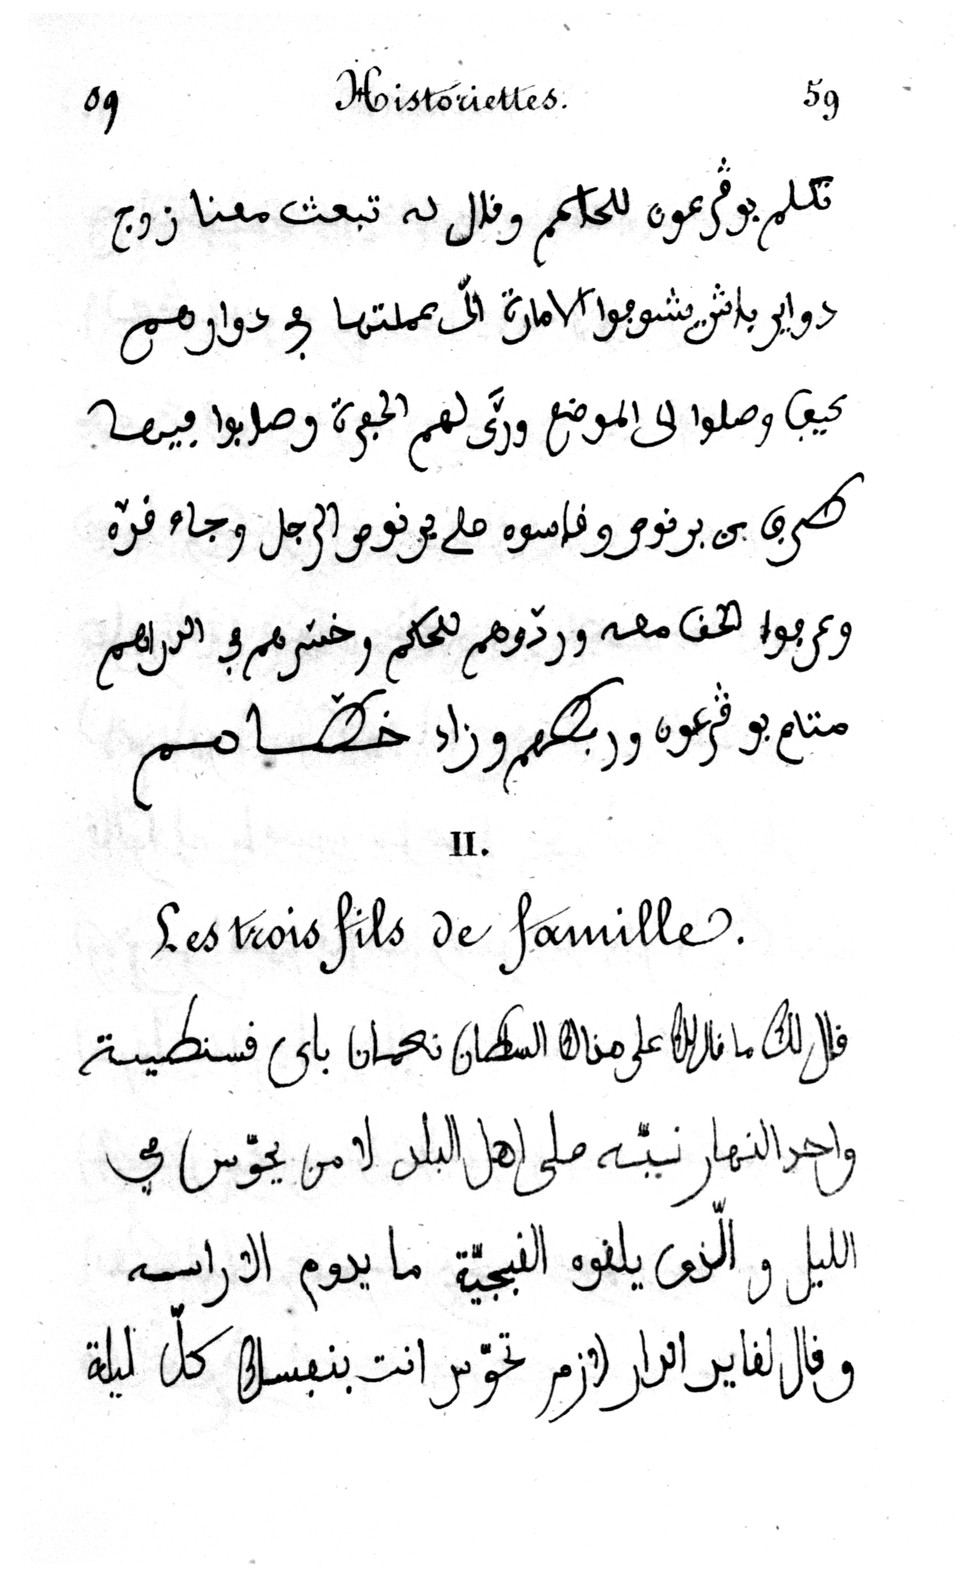 59 Historiettes. 59
تكلم بو ڨرعون للحاكم وقال له تبعث معنا زوج
دواير باش يشوفوا الامارة الّى عملتها في دوارهم
كيف وصلوا الى الموضع ورّى لهم الحفرة وصابوا فيها
طرف بن برنوص وقاسوه على برنوص الرجل وجاء قدّه
وعرفوا الحق معه وردّوهم للحاكم وخسّرهم في الدراهم
متاع بو ڨرعون وربطهم وزاد خطّاهم
II.
Les trois fils de famille.
قال لك ما قال لك على هذاك السلطان نعمان باي قسنطينة
واحد النهار نبّه على اهل البلد لا من يحوّس في
الليل و الّذي يلقوه القبجيّة ما يدوم الا راسه
وقال لقايد الدار لازم تحوّس انت بنفسك كلّ ليلة